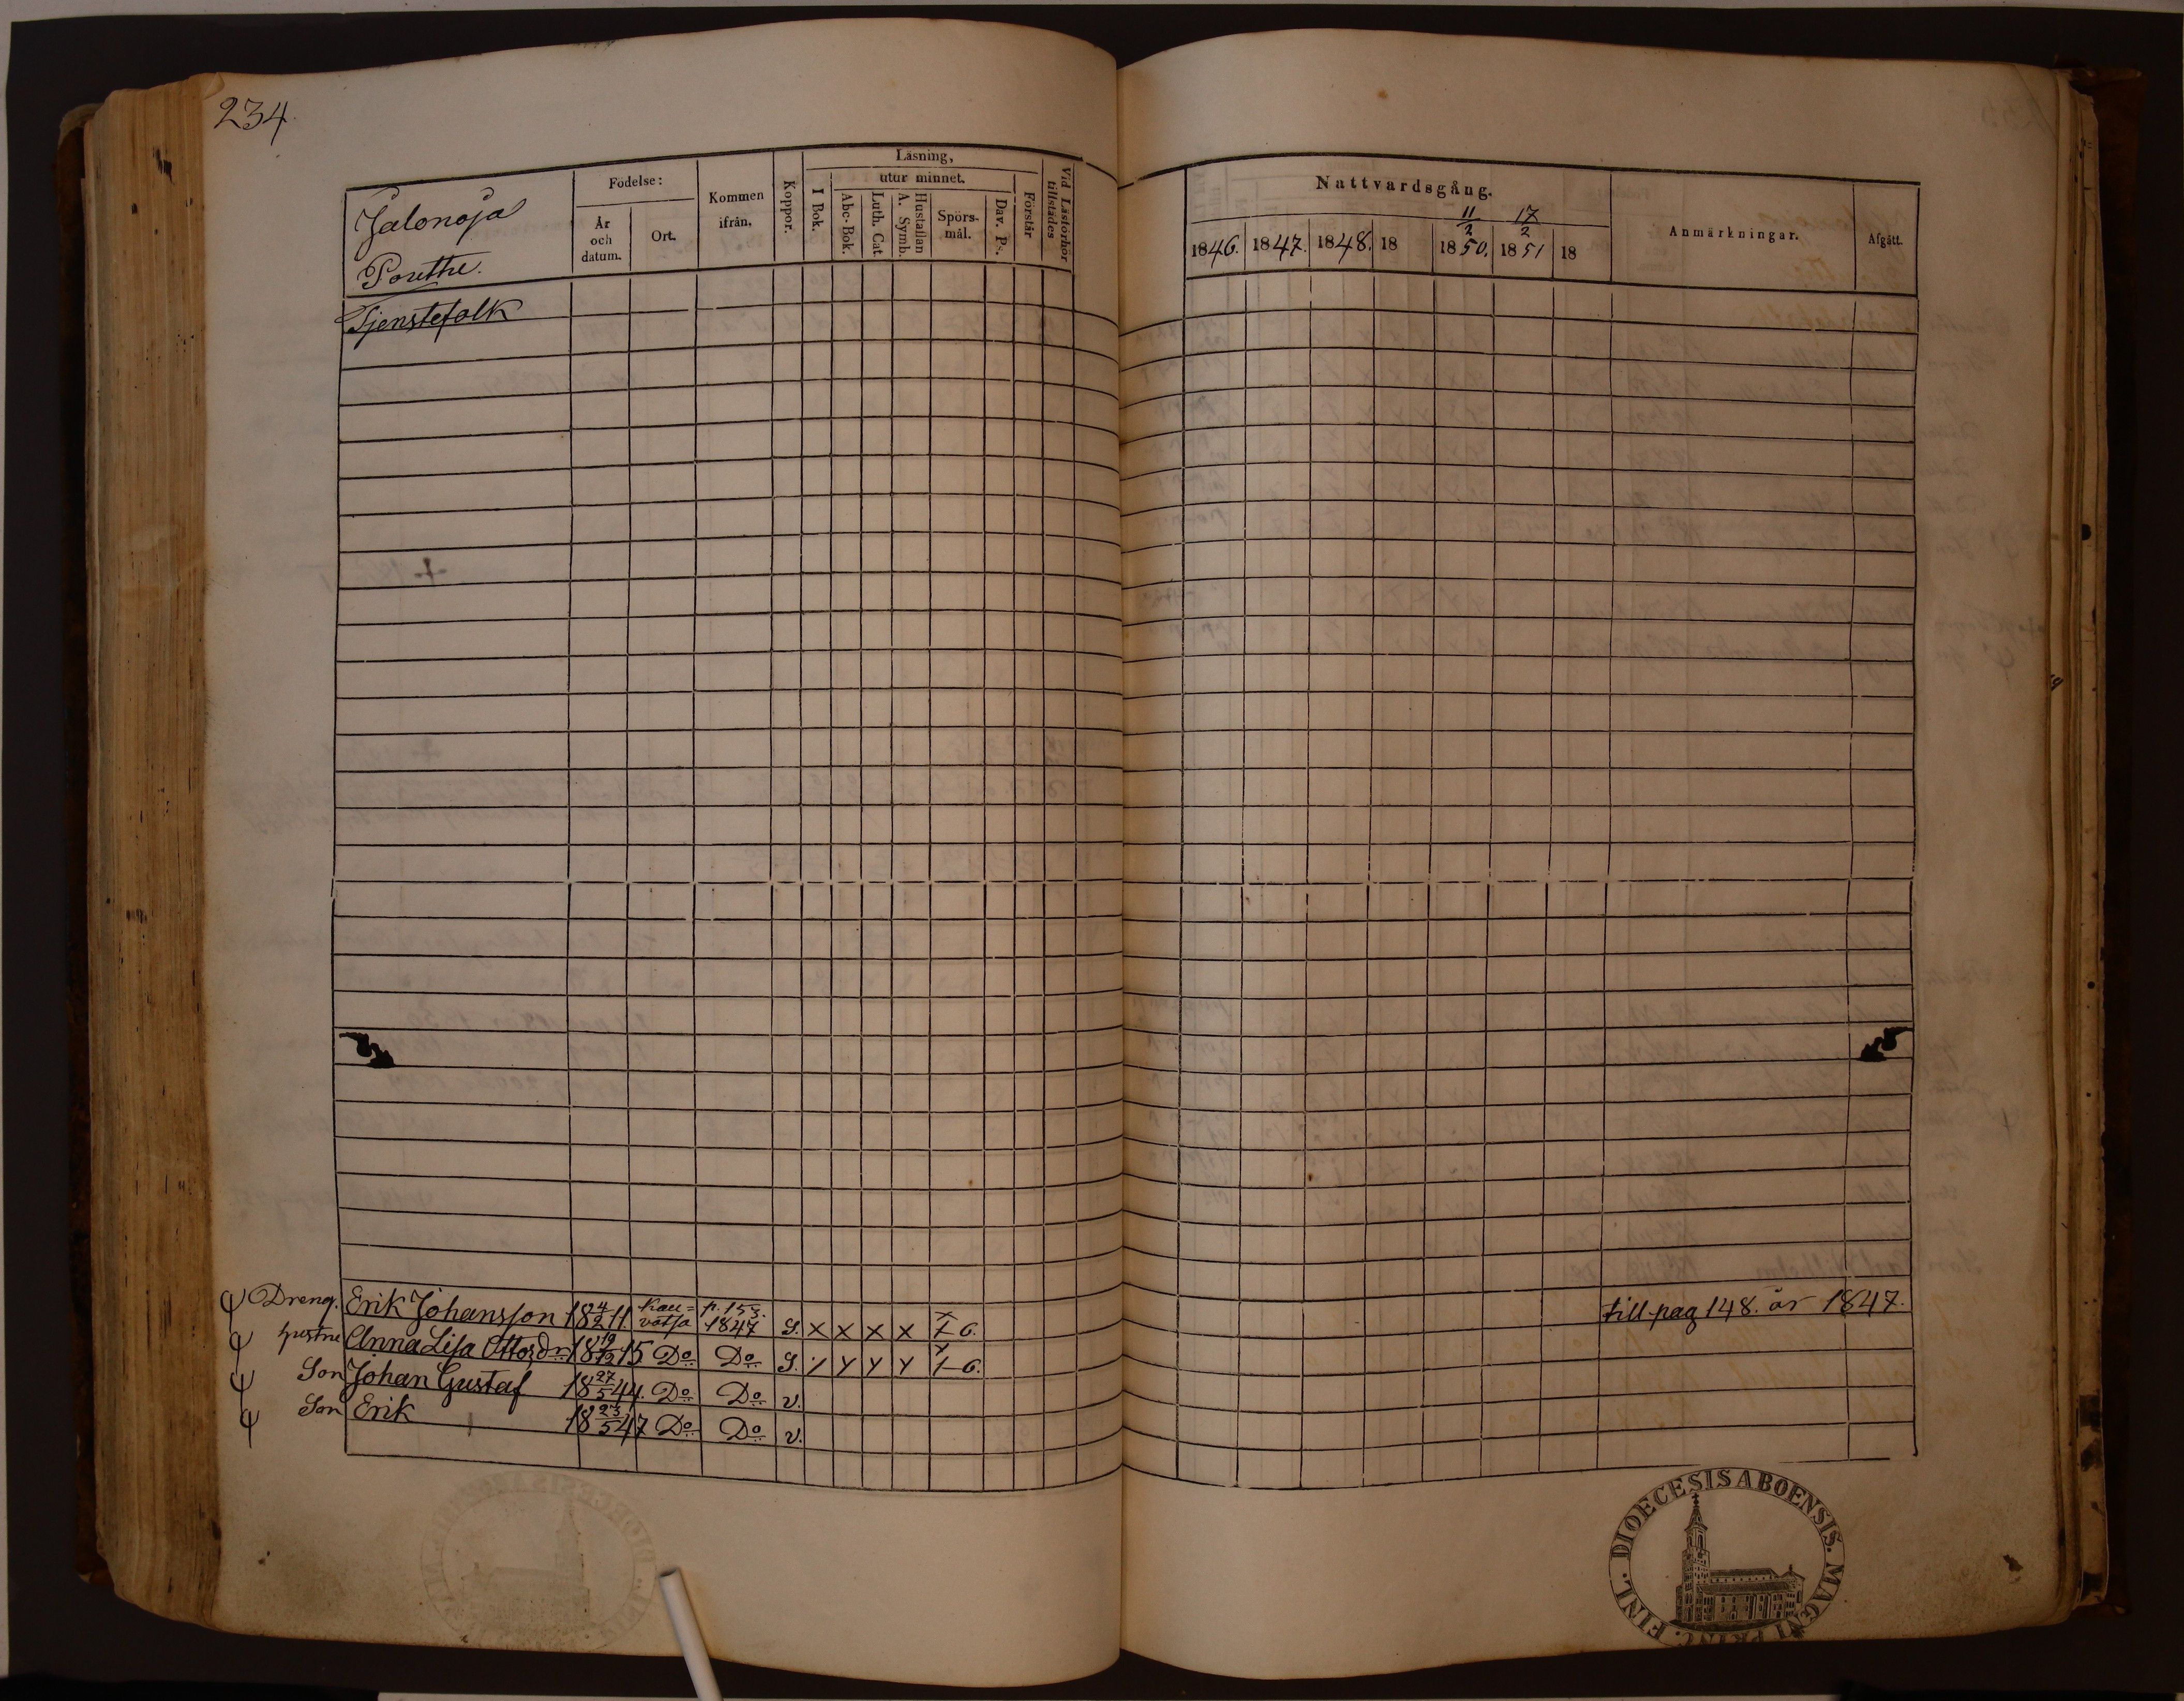 234.
Jalonoja
Födelse:
År och datum.
Ort.
Kommen ifrån,
Koppor.
Läsning,
utur minnet.
I Bok.
Abc-Bok.
Luth. Cat.
Hustaflan A. Symb.
Spörs-mål.
Dav. Ps.
Förstår
Vid Läsförhör tillstädes
Nattvardsgång.
11/2 17/2
1846. 1847. 1848. 18 1850. 1851 18
Anmärkningar.
Afgått.
Tjenstefolk
Dreng. Erik Johansson 18 4/2 11. Kau=vatsa p. 153. 1847 S. x x x x x 6. till pag 148. år 1847.
hustru Anna Lisa Ottosdr 18 19/12 15 Do Do S. y y y y 6.
Son Johan Gustaf 18 27/5 44. Do Do v.
Son Erik 18 23/5 47 Do Do v.
DIOECESIS ABOENSIS. MAGNI PRINC. FINL.